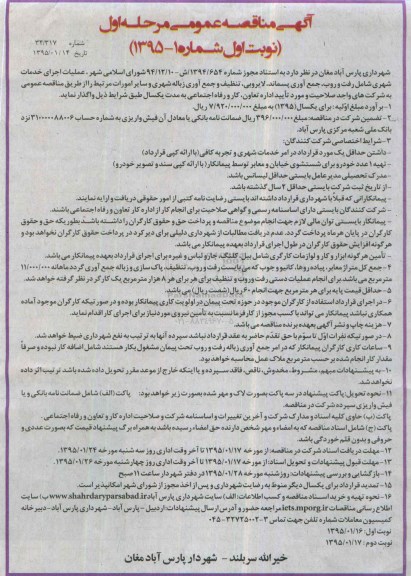 آگهی مناقصه عمومی مرحله اول
(نوبت اول شماره ۱-۱۳۹۵)
شماره ۳۳/۳۱۷
تاریخ ۱۳۹۵/۰۱/۱۴
شهرداری پارس آباد مغان در نظر دارد به استناد مجوز شماره ۱۳۹۴/۶۵۴/ش-۹۴/۱۲/۱۰ شورای اسلامی شهر، عملیات اجرای خدمات
شهری شامل رفت و روب، جمع آوری پسماند، لایروبی، تنظیف و جمع آوری زباله شهری و سایر امورات مرتبط را از طریق مناقصه عمومی
به شرکت های واجد صلاحیت و مورد تأیید اداره تعاون، کار و رفاه اجتماعی به مدت یکسال طبق شرایط ذیل واگذار نماید.
۱- برآورد مبلغ اولیه: برای یکسال (۱۳۹۵) به مبلغ ۷/۹۲۰/۰۰۰/۰۰۰ ریال.
۲- تضمین شرکت در مناقصه: مبلغ ۳۹۶/۰۰۰/۰۰۰ ریال ضمانت نامه بانکی یا معادل آن فیش واریزی به شماره حساب ۳۱۰۰۰۰۰۸۸۰۰۶ نزد
بانک ملی شعبه مرکزی پارس آباد.
۳- شرایط اختصاصی شرکت کنندگان:
- داشتن حداقل یک مورد قرارداد در امر خدمات شهری و تجربه کافی (با ارائه کپی قرارداد)
- تهیه ۱ عدد خودرو برای شستشوی خیابان و معابر توسط پیمانکار (با ارائه کپی سند و تصویر خودرو)
- مدرک تحصیلی مدیرعامل بایستی حداقل لیسانس باشد.
- از تاریخ ثبت شرکت بایستی حداقل ۲ سال گذشته باشد.
- پیمانکارانی که قبلا با شهرداری قرارداد داشته اند بایستی رضایت نامه کتبی از امور حقوقی دریافت و ارایه نمایند.
- شرکت کنندگان بایستی دارای اساسنامه رسمی و گواهی صلاحیت برای انجام کار از اداره کار تعاون و رفاه اجتماعی باشند.
- پیمانکار بایستی توان مالی لازم جهت انجام موضوع مناقصه و پرداخت حق و حقوق کارگران را داشته باشند بطوریکه حق و حقوق
کارگران در پایان هر ماه پرداخت گردد. عدم دریافت مطالبات از شهرداری دلیلی برای دیر کرد در پرداخت حقوق کارگران نخواهد بود و
هرگونه افزایش حقوق کارگران در طول اجرای قرارداد بعهده پیمانکار می باشد.
- تأمین هرگونه ابزار و کار و لوازمات کارگری شامل بیل، کلنگ، جارو لباس و غیره برای اجرای قرارداد بعهده پیمانکار می باشد.
۴- جمع کل متراژ معابر، پیاده روها، کانیو و جوب که می بایست رفت و روب، تنظیف، پاکسازی و زباله جمع آوری گردد ماهانه ۱۱/۰۰۰/۰۰۰
مترمربع می باشد. برای انجام عملیات دستی رفت و روب و تنظیف برای هر نفر ۸ هزار مترمربع یک کارگر در نظر گرفته خواهد شد.
۵- حداقل قیمت پایه برای هر مترمربع جهت انجام ۶۰ ریال (شصت ریال) می باشد.
۶- در اجرای قرارداد استفاده از کارگران موجود در حوزه تحت پیمان در اولویت کاری پیمانکار بوده و در صورتیکه کارگران موجود آماده
همکاری نباشند پیمانکار می تواند با کسب مجوز از کارفرما نسبت به تأمین نیروی موردنیاز برای اجرای کار اقدام نماید.
۷- هزینه چاپ و نشر آگهی بعهده برنده مناقصه می باشد.
۸- در صورتیکه نفرات اول تا سوم با حق تقدم حاضر به عقد قرارداد نباشد سپرده آنها به ترتیب به نفع شهرداری ضبط خواهد شد.
۹- ساعات کاری کارگران پیمانکار که در امر جمع آوری زباله رفت و روب تحت پیمان مشغول بکار هستند شامل اضافه کار نبوده و صرفاً
مقدار کار انجام شده بر حسب مترمربع ملاک عمل محاسبه خواهد بود.
۱۰- به پیشنهادات مبهم، مشروط، مخدوش، ناقص، فاقد سپرده و یا اینکه خارج از موعد مقرر تحویل داده شده باشد ترتیب اثر داده
نخواهد شد.
۱۱- نحوه تحویل: پاکت پیشنهاد در سه پاکت بصورت لاک و مهر شده بصورت زیر خواهد بود: پاکت (الف) شامل ضمانت نامه بانکی و یا
فیش واریزی سپرده شرکت در مناقصه.
پاکت (ب) حاوی کلیه اسناد و مدارک شرکت و آخرین تغییرات و اساسنامه شرکت و صلاحیت اداره کار و تعاون و رفاه اجتماعی.
پاکت (ج) شامل اسناد مناقصه که به امضاء و مهر شخص دارنده حق امضاء رسیده باشد به همراه برگ پیشنهاد قیمت که بصورت عددی و
حروفی و بدون قلم خوردگی باشد.
۱۲- مهلت دریافت اسناد شرکت در مناقصه: از مورخه ۱۳۹۵/۰۱/۱۷ تا آخر وقت اداری روز سه شنبه مورخه ۱۳۹۵/۰۱/۲۴
۱۳- مهلت قبول پیشنهادات و تحویل اسناد از مورخه ۱۳۹۵/۰۱/۱۷ تا آخر وقت اداری روز چهارشنبه مورخه ۱۳۹۵/۰۱/۲۶
۱۴- بازگشایی و بررسی پیشنهادات: روز شنبه مورخه ۱۳۹۵/۰۱/۲۸ در دفتر شهردار ساعت ۱۱ صبح
۱۵- تمدید قرارداد برای یکسال دیگر منوط به رضایت شهرداری و پس از اخذ مجوز از شورای شهر امکانپذیر است.
۱۶- نحوه تهیه و خرید اسناد مناقصه و کسب اطلاعات: الف) سایت شهرداری پارس آباد www.shahrdaryparsabad.ir ب) سایت
اطلاع رسانی مناقصات iets.mporg.ir مراجعه حضوری و آدرس ارسال پیشنهادات: اردبیل - پارس آباد - شهرداری پارس آباد - دبیرخانه
کمیسیون معاملات شماره تلفن جهت تماس ۳-۳۲۷۲۵۰۰۲-۰۴۵
نوبت اول: ۱۳۹۵/۰۱/۱۶
نوبت دوم: ۱۳۹۵/۰۱/۱۷
خیراله سربلند - شهردار پارس آباد مغان